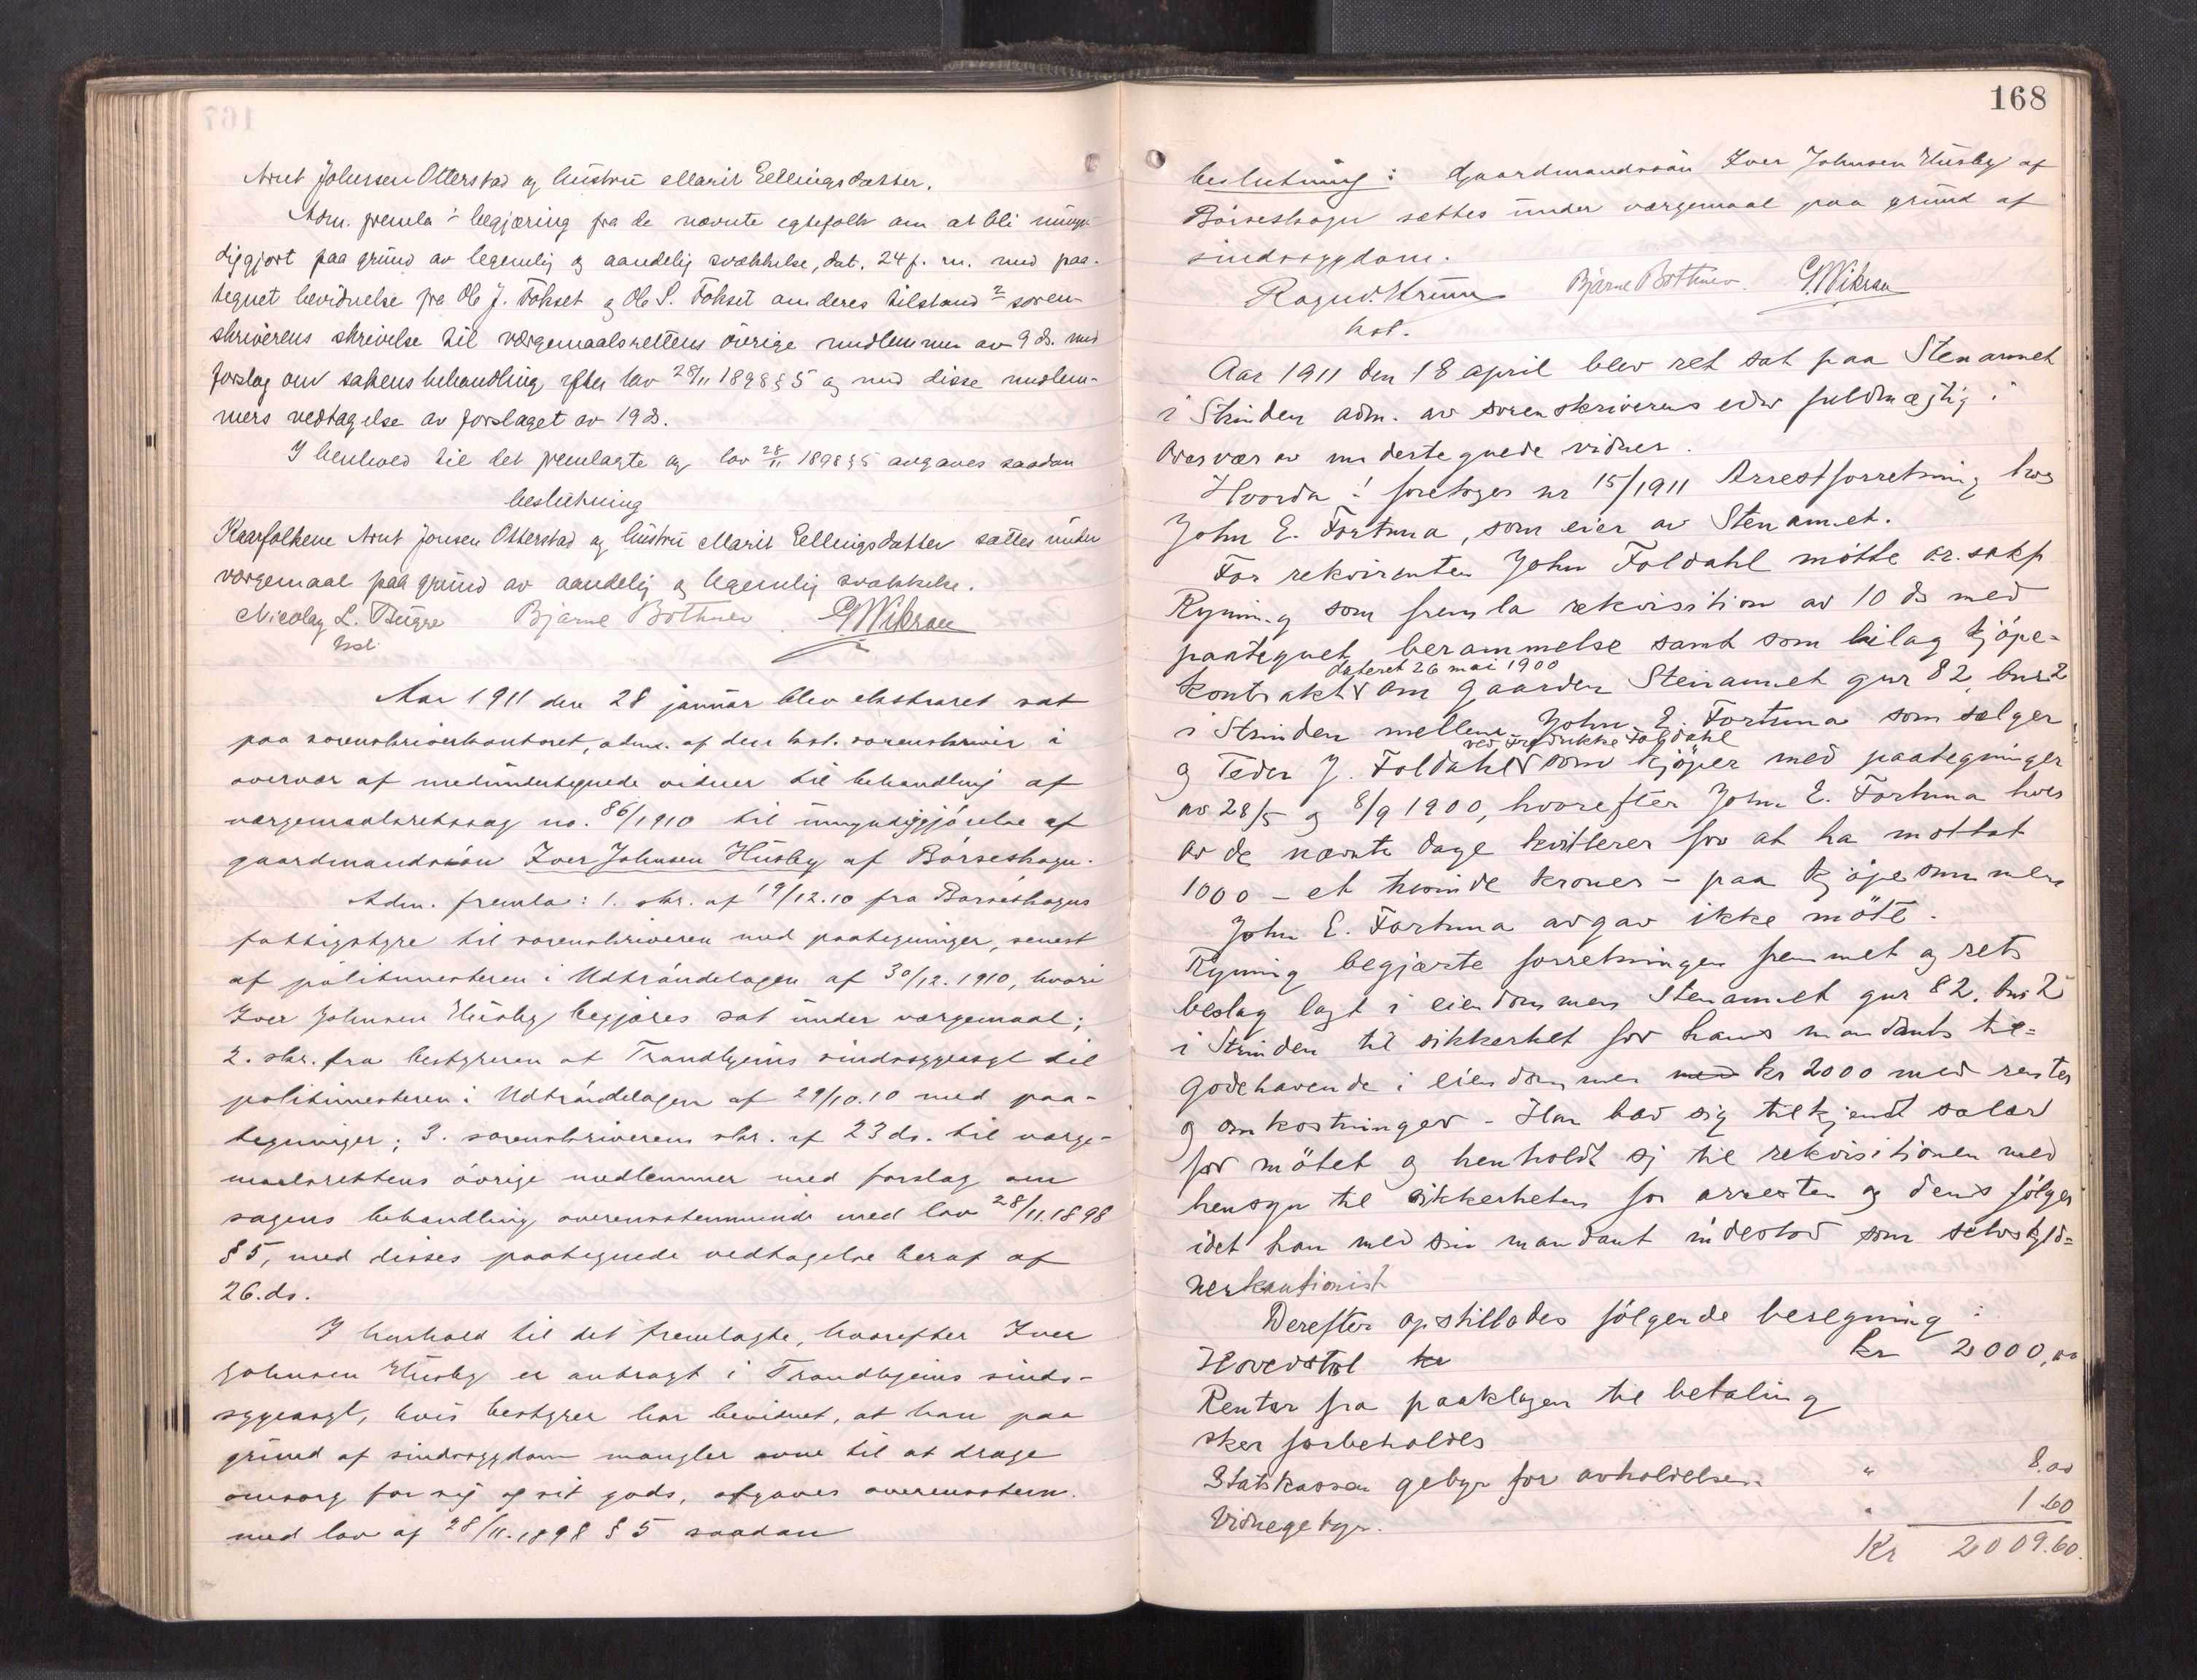 Arnt Johnsen Otterstad og hustru Marit Ellingsdatter.
Adm. fremla 1 begjæring fra de nævnte egtefolk om at bli umyn-
diggjort paa grund av legemlig og aandelig svækkelse, dat. 24 f. m. med paa-
tegnet bevidnelse fra Ole J. Fokset og Ole S. Fokset om deres tilstand 2 soren-
skriverens skrivelse til vergemaalsrettens øvrige medlemmer av 9 ds. med
forslag om sakens behandling efter lov 28/11 1898 § 5 og med disse medlem-
mers vedtagelse av forslaget av 19 ds.
I henhold til det fremlagte og lov 28/11 1898 § 5 avgaves saadan
beslutning
Kaarfolkene Arnt Jonsen Otterstad og hustru Marit Ellingsdatter sættes under
værgemaal paa grund av aandelig og legemlig svækkelse.
Nicolay L. Bugge Bjarne Bothner G Wiksau
kst.
Aar 1911 den 28 januar blev ekstraret sat
paa sorenskriverkontoret, adm. af den kst. sorenskriver i
overvær af medundertegnede vidner til behandling af
værgemaalsretssag no. 86/1910 til umyndiggjørelse af
gaardmandssøn Iver Johnsen Husby af Børseskogn.
Adm. fremla: 1. skr. af 19/12.10 fra Børseskogns
fattigstyre til sorenskriveren med paategninger, senest
af politimesteren i Udtrøndelagen af 30/12.1910, hvori
Iver Johnsen Husby begjæres sat under værgemaal;
2. skr. fra bestyreren at Trondhjems sindssygeasyl til
politimesteren i Udtrøndelagen af 29/10.10 med paa-
tegninger; 3. sorenskriverens skr. af 23 ds. til værge-
maalsrettens øvrige medlemmer med forslag om
sagens behandling overensstemmende med lov 28/11.1898
§ 5, med disses paategnede vedtagelse heraf af
26. ds.
I henhold til det fremlagte, hvorefter Iver
Johnsen Husby er anbragt i Trondhjems sinds-
sygeasyl, hvis bestyrer har bevidnet, at han paa
grund af sindssygdom mangler evne til at drage
omsorg for sig og sit gods, afgaves overensstem.
med lov af 28/11.1898 § 5 saadan
168
beslutning: Gaardmandssøn Iver Johnsen Husby af
Børseskogn sættes under værgemaal paa grund af
sindssygdom.
Ragnv. Krum Bjarne Bothner. G Wiksau
kst.
Aar 1911 den 18 april blev ret sat paa Stenaunet
i Strinden adm. av sorenskriverens edsv fuldmægtig i
overvær av undertegnede vidner.
Hvorda: foretoges nr 15/1911 Arrestforretning hos
John E. Fortuna, som eier av Stenaunet.
For rekvirenten John Foldahl møtte o.r. sakf
Ryning som fremla rekvisition av 10 ds med
paategnet berammelse samt som bilag kjøpe-
dateret 26 mai 1900
kontrakt om gaarden Stenaunet gnr 82, bnr 2
i Strinden mellem John E. Fortuna som sælger
ved Fredrikke Foldahl
og Peder J. Foldahl som kjøper med paategninger
av 28/5 og 8/9 1900, hvorefter John E. Fortuna hver
av de nævnte dage kvitterer for at ha mottat
1000 - et tusinde kroner - paa kjøpesummen
John E. Fortuna avgav ikke møte.
Ryning begjærte forretningen fremmet og rets
beslag lagt i eiendommen Stenaunet gnr 82. bnr 2
i Strinden til sikkerhet for hans mandants til-
godehavende i eiendommen med kr 2000 med renter
og omkostninger - Han bad sig tilkjendt salær
for møtet og henholdt sig til rekvisitionen med
hensyn til sikkerheten for arresten og dens følger
idet han med sin mandant indestod som selvskyld-
nerkautionist
Derefter opstilledes følgende beregning:
Hovedstol kr Kr 2000,00
Renter fra paaklagen til betaling
sker forbeholdes
Statskassen gebyr for avholdelsen " 8.00
Vidnegebyr. " 1.60
Kr 2009.60.